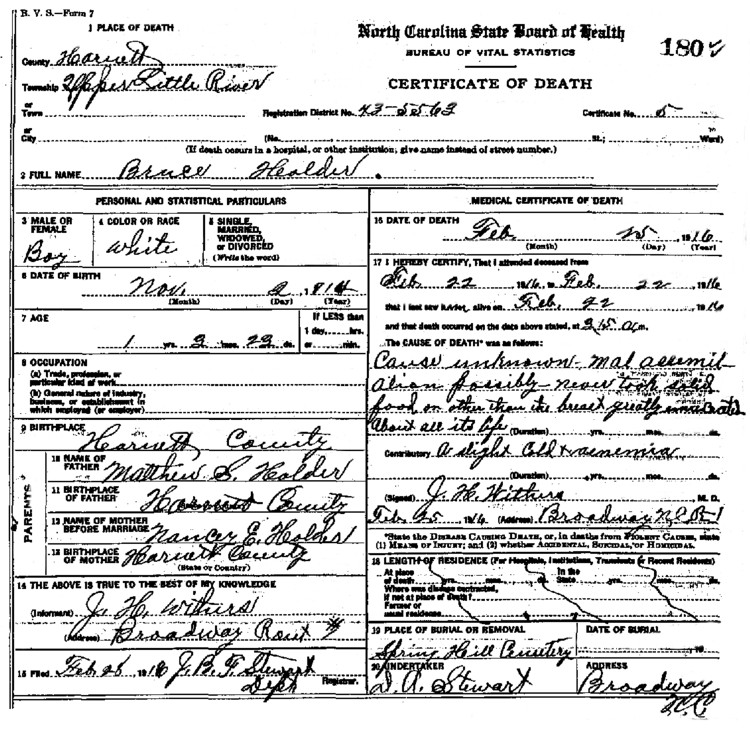 B. V. S.—Form 7
1 PLACE OF DEATH
County Harnett
Township Upper Little River
or
Town
or
City
North Carolina State Board of Health
BUREAU OF VITAL STATISTICS
CERTIFICATE OF DEATH
180
Registration District No. 43-5563 Certificate No. 5
(No. St.; Ward)
(If death occurs in a hospital, or other institution, give name instead of street number.)
2 FULL NAME Bruce Holder.
PERSONAL AND STATISTICAL PARTICULARS
3 MALE OR FEMALE
Boy
4 COLOR OR RACE
White
5 SINGLE, MARRIED, WIDOWED, or DIVORCED
(Write the word)
6 DATE OF BIRTH
Nov. 2, 1914
(Month) (Day) (Year)
7 AGE
1 yrs. 3 mos. 23 ds.
If LESS than
1 day, hrs.
or min.
8 OCCUPATION
(a) Trade, profession, or
particular kind of work
(b) General nature of industry,
business, or establishment in
which employed (or employer)
9 BIRTHPLACE
Harnett County
PARENTS
10 NAME OF FATHER Matthew S. Holder
11 BIRTHPLACE OF FATHER Harnett County
12 NAME OF MOTHER BEFORE MARRIAGE Nancy E. Holder
13 BIRTHPLACE OF MOTHER Harnett County
(State or Country)
14 THE ABOVE IS TRUE TO THE BEST OF MY KNOWLEDGE
(Informant) J. H. Withers
(Address) Broadway Rout
15 Filed Feb 26 1916 J. B. F. Stewart
Registrar.
MEDICAL CERTIFICATE OF DEATH
16 DATE OF DEATH
Feb 25 1916
(Month) (Day) (Year)
17 I HEREBY CERTIFY, That I attended deceased from
Feb 22 1916, to Feb. 22 1916
that I last saw alive on Feb. 22 1916
and that death occurred on the date above stated, at a.m.
The CAUSE OF DEATH* was as follows:
Cause unknown - mal assimil
ation possibly - never took solid
food or other than the breast greatly
about all its life
(Duration) yrs. mos. ds.
Contributory A slight Cold & anemia
(Duration) yrs. mos. ds.
(Signed) J. H. Withers M. D.
Feb 25, 1916 (Address) Broadway N.C. R-1
*State the DISEASE CAUSING DEATH, or, in deaths from VIOLENT CAUSES, state
(1) MEANS OF INJURY; and (2) whether ACCIDENTAL, SUICIDAL, or HOMICIDAL.
18 LENGTH OF RESIDENCE (For Hospitals, Institutions, Transients or Recent Residents)
At place of death yrs. mos. ds. In the State yrs. mos. ds.
Where was disease contracted,
if not at place of death?
Former or
usual residence
19 PLACE OF BURIAL OR REMOVAL
Spring Hill Cemetery
DATE OF BURIAL
19
20 UNDERTAKER
D. A. Stewart
ADDRESS
Broadway
N.C.